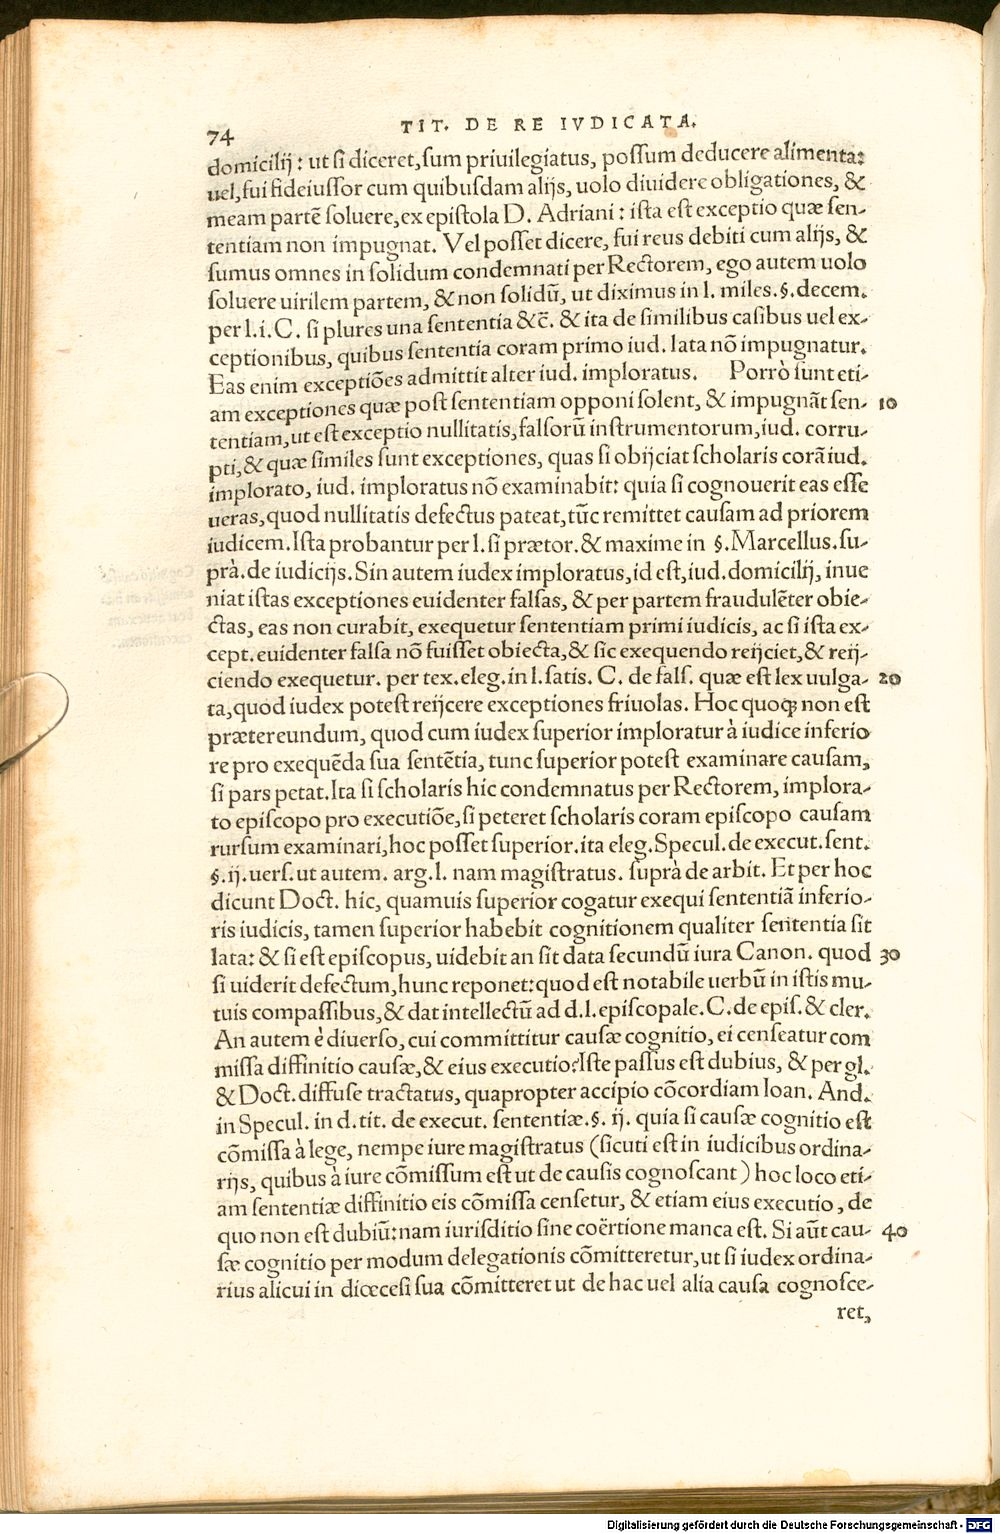 74
TIT. DE RE IVDICATA.
domicilij: ut si diceret, sum priuilegiatus, possum deducere alimenta:
uel, fui fideiussor cum quibusdam alijs, uolo diuidere obligationes, &
meam partē soluere, ex epistola D. Adriani: ista est exceptio quæ sen-
tentiam non impugnat. Vel posset dicere, fui reus debiti cum alijs, &
sumus omnes in solidum condemnati per Rectorem, ego autem uolo
soluere uirilem partem, & non solidũ, ut diximus in l. miles. §. decem.
per l. i. C. si plures una sententia &c̄. & ita de similibus casibus uel ex-
ceptionibus, quibus sententia coram primo iud. lata nõ impugnatur.
Eas enim exceptiões admittit alter iud. imploratus. Porrò sunt eti-
am exceptiones quæ post sententiam opponi solent, & impugnãt sen- 10
tentiam, ut est exceptio nullitatis, falsorũ instrumentorum, iud. corru-
pti, & quæ similes sunt exceptiones, quas si obijciat scholaris corã iud.
implorato, iud. imploratus nõ examinabit: quia si cognouerit eas esse
ueras, quod nullitatis defectus pateat, tũc remittet causam ad priorem
iudicem. Ista probantur per l. si prætor. & maxime in §. Marcellus. su-
prà. de iudicijs. Sin autem iudex imploratus, id est, iud. domicilij, inue
niat istas exceptiones euidenter falsas, & per partem fraudulẽter obie-
ctas, eas non curabit, exequetur sententiam primi iudicis, ac si ista ex-
cept. euidenter falsa nõ fuisset obiecta, & sic exequendo reijciet, & reij-
ciendo exequetur. per tex. eleg. in l. satis. C. de fals. quæ est lex uulga- 20
ta, quod iudex potest reijcere exceptiones friuolas. Hoc quoq; non est
prætereundum, quod cum iudex superior imploratur à iudice inferio
re pro exequẽda sua sentẽtia, tunc superior potest examinare causam,
si pars petat. Ita si scholaris hic condemnatus per Rectorem, implora-
to episcopo pro executiõe, si peteret scholaris coram episcopo causam
rursum examinari, hoc posset superior. ita eleg. Specul. de execut. sent.
§. ij. uers. ut autem. arg. l. nam magistratus. suprà de arbit. Et per hoc
dicunt Doct. hic, quamuis superior cogatur exequi sententiã inferio-
ris iudicis, tamen superior habebit cognitionem qualiter sententia sit
lata: & si est episcopus, uidebit an sit data secundũ iura Canon. quod 30
si uiderit defectum, hunc reponet: quod est notabile uerbũ in istis mu-
tuis compassibus, & dat intellectũ ad d. l. episcopale. C. de epis. & cler.
An autem è diuerso, cui committitur causæ cognitio, ei censeatur com
missa diffinitio causæ, & eius executio? Iste passus est dubius, & per gl.
& Doct. diffuse tractatus, quapropter accipio cõcordiam Ioan. And.
in Specul. in d. tit. de execut. sententiæ. §. ij. quia si causæ cognitio est
cõmissa à lege, nempe iure magistratus (sicuti est in iudicibus ordina-
rijs, quibus à iure cõmissum est ut de causis cognoscant) hoc loco eti-
am sententiæ diffinitio eis cõmissa censetur, & etiam eius executio, de
quo non est dubiũ: nam iurisditio sine coërtione manca est. Si aũt cau- 40
sæ cognitio per modum delegationis cõmitteretur, ut si iudex ordina-
rius alicui in diœcesi sua cõmitteret ut de hac uel alia causa cognosce-
ret,
Digitalisierung gefördert durch die Deutsche Forschungsgemeinschaft - DFG